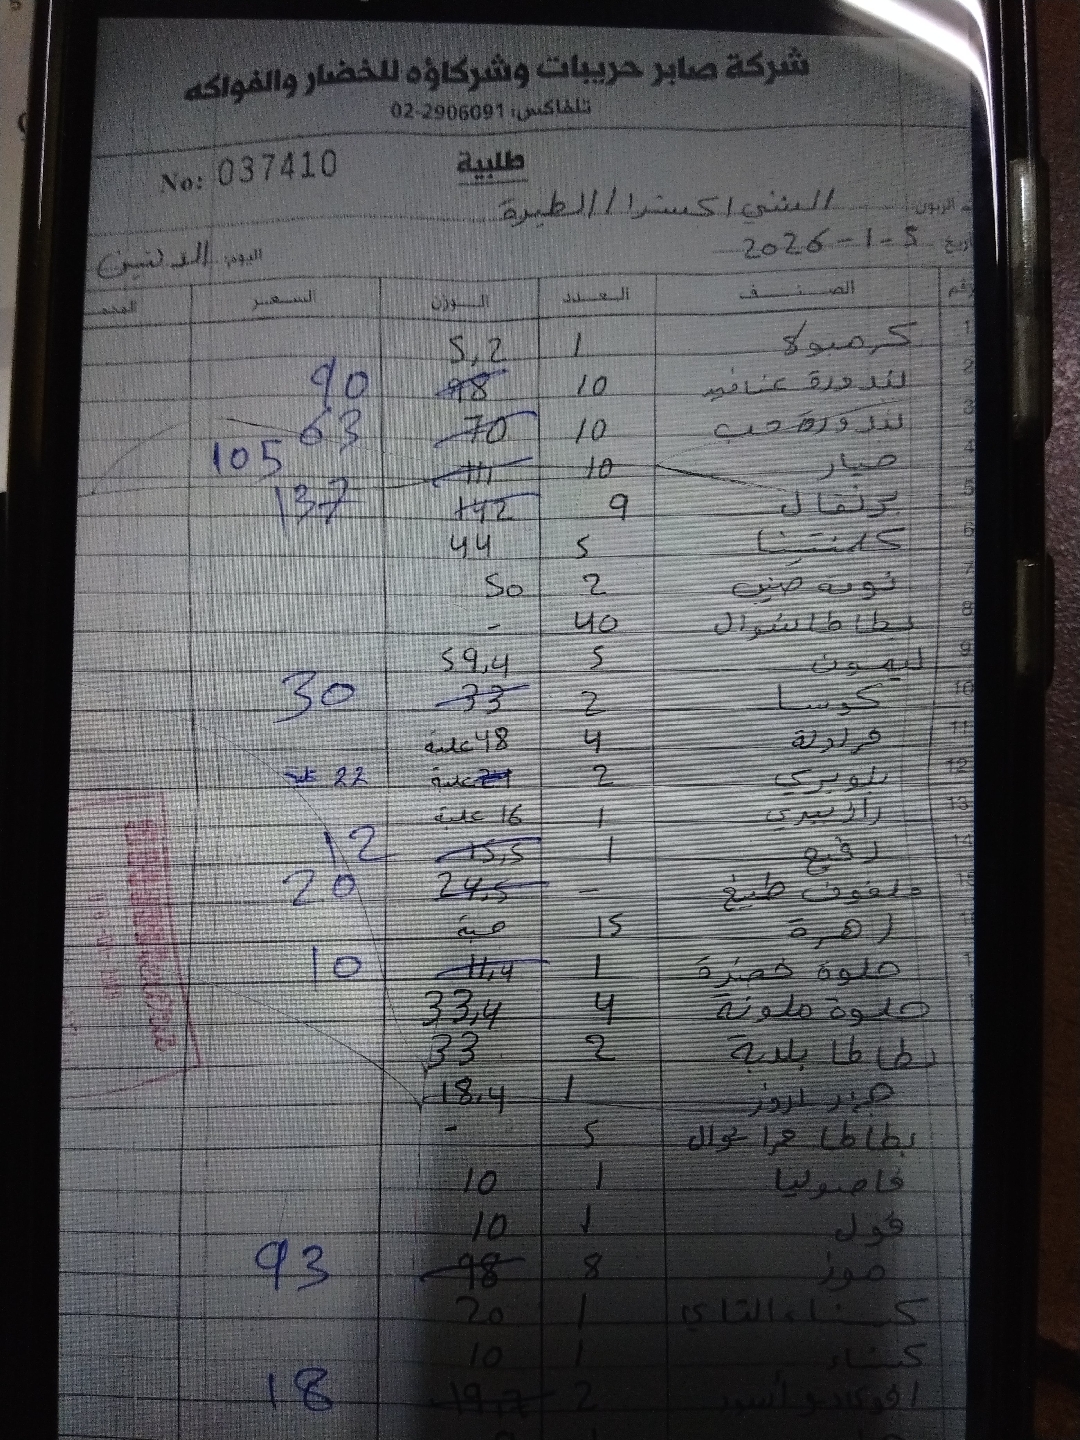 شركة صابر حريبات وشركاؤه للخضار والفواكه
تلفاكس: 02-2906091
No: 037410
طلبية
الزبون: الشني اكسترا / الطيرة
2026-1-5
اليوم: الاثنين
رقم الصنف العدد الوزن السعر
1 كرمبولا 1 5,2
2 بندورة عناقيد 10 98 90
3 بندورة حب 10 70 63
4 خيار 10 111 105
5 برتقال 9 142 137
6 كلمنتينا 5 44
7 2 50
8 بطاطا شوال 40 -
9 ليمون 5 59,4
10 كوسا 2 33 30
11 فراولة 4 48 علبة
12 بلوبري 2 علبة 22
13 رازبيري 1 16 علبة
14 1 15,5 12
15 ملفوف طبيخ - 24,5 20
زهرة 15 حبة
حلوة خضرة 1 11,4 10
حلوة ملونة 4 33,4
بطاطا بلدية 2 33
1 18,4
بطاطا 5 -
فاصوليا 1 10
فول 1 10
موز 8 98 93
1 20
1 10
افوكادو اسود 2 19,7 18